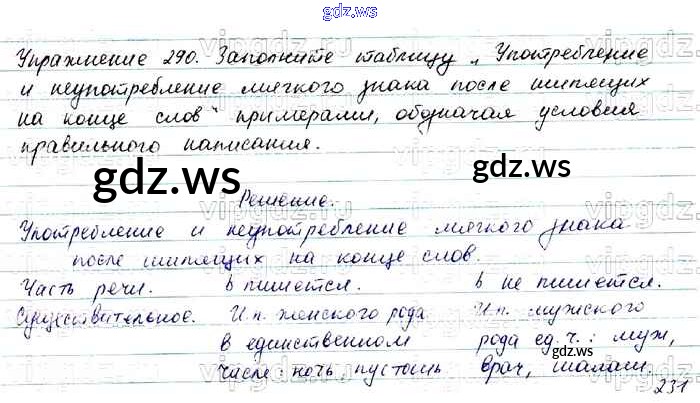 gdz.ws
Упражнение 290. Заполните таблицу „Употребление
и неупотребление мягкого знака после шипящих
на конце слов“ примерами, обозначая условия
правильного написания.
gdz.ws gdz.ws
Решение.
Употребление и неупотребление мягкого знака
после шипящих на конце слов.
Часть речи. ь пишется. ь не пишется.
Существительное. И.п. женского рода И.п. мужского
в единственном рода ед.ч.: муж,
числе: ночь, пустошь врач, шалаш.
gdz.ws
231